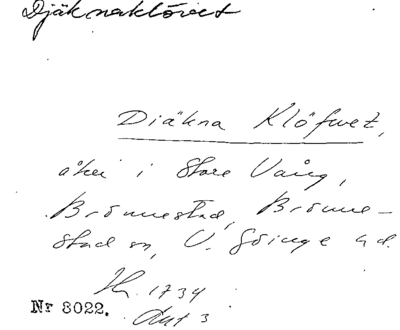 Djäknaklövet
Diäkna Klöfwet,
åker i Store Vång,
Brönnestad, Brönne-
stad sn, V. Göinge hd.
Hr. 1734
Akt 3
Nr 8022.